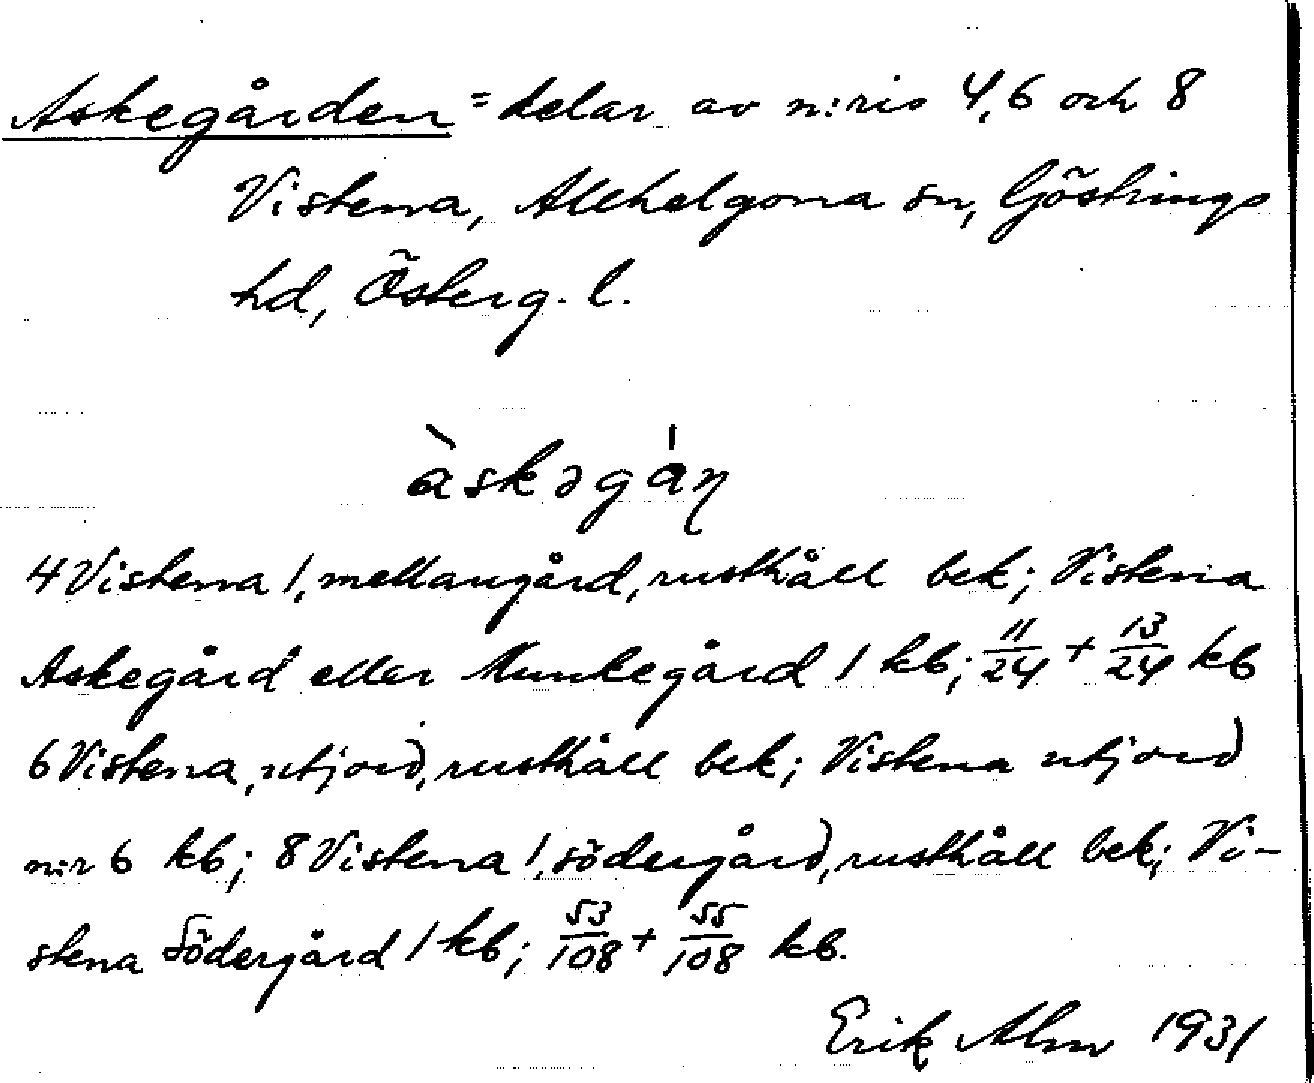 Askegården = delar av n:ris 4, 6 och 8
Vistena, Allhelgona sn, Göstrings
hd, Österg. l.
àskəgáꞃ
4 Vistena 1, mellangård, rusthåll bek; Vistena
Askegård eller Munkegård 1 kb; 11/24 + 13/24 kb
6 Vistena, utjord, rusthåll bek; Vistena utjord
n:r 6 kb; 8 Vistena 1, södergård, rusthåll bek; Vi-
stena Södergård 1 kb; 53/108 + 55/108 kb.
Erik Alm 1931